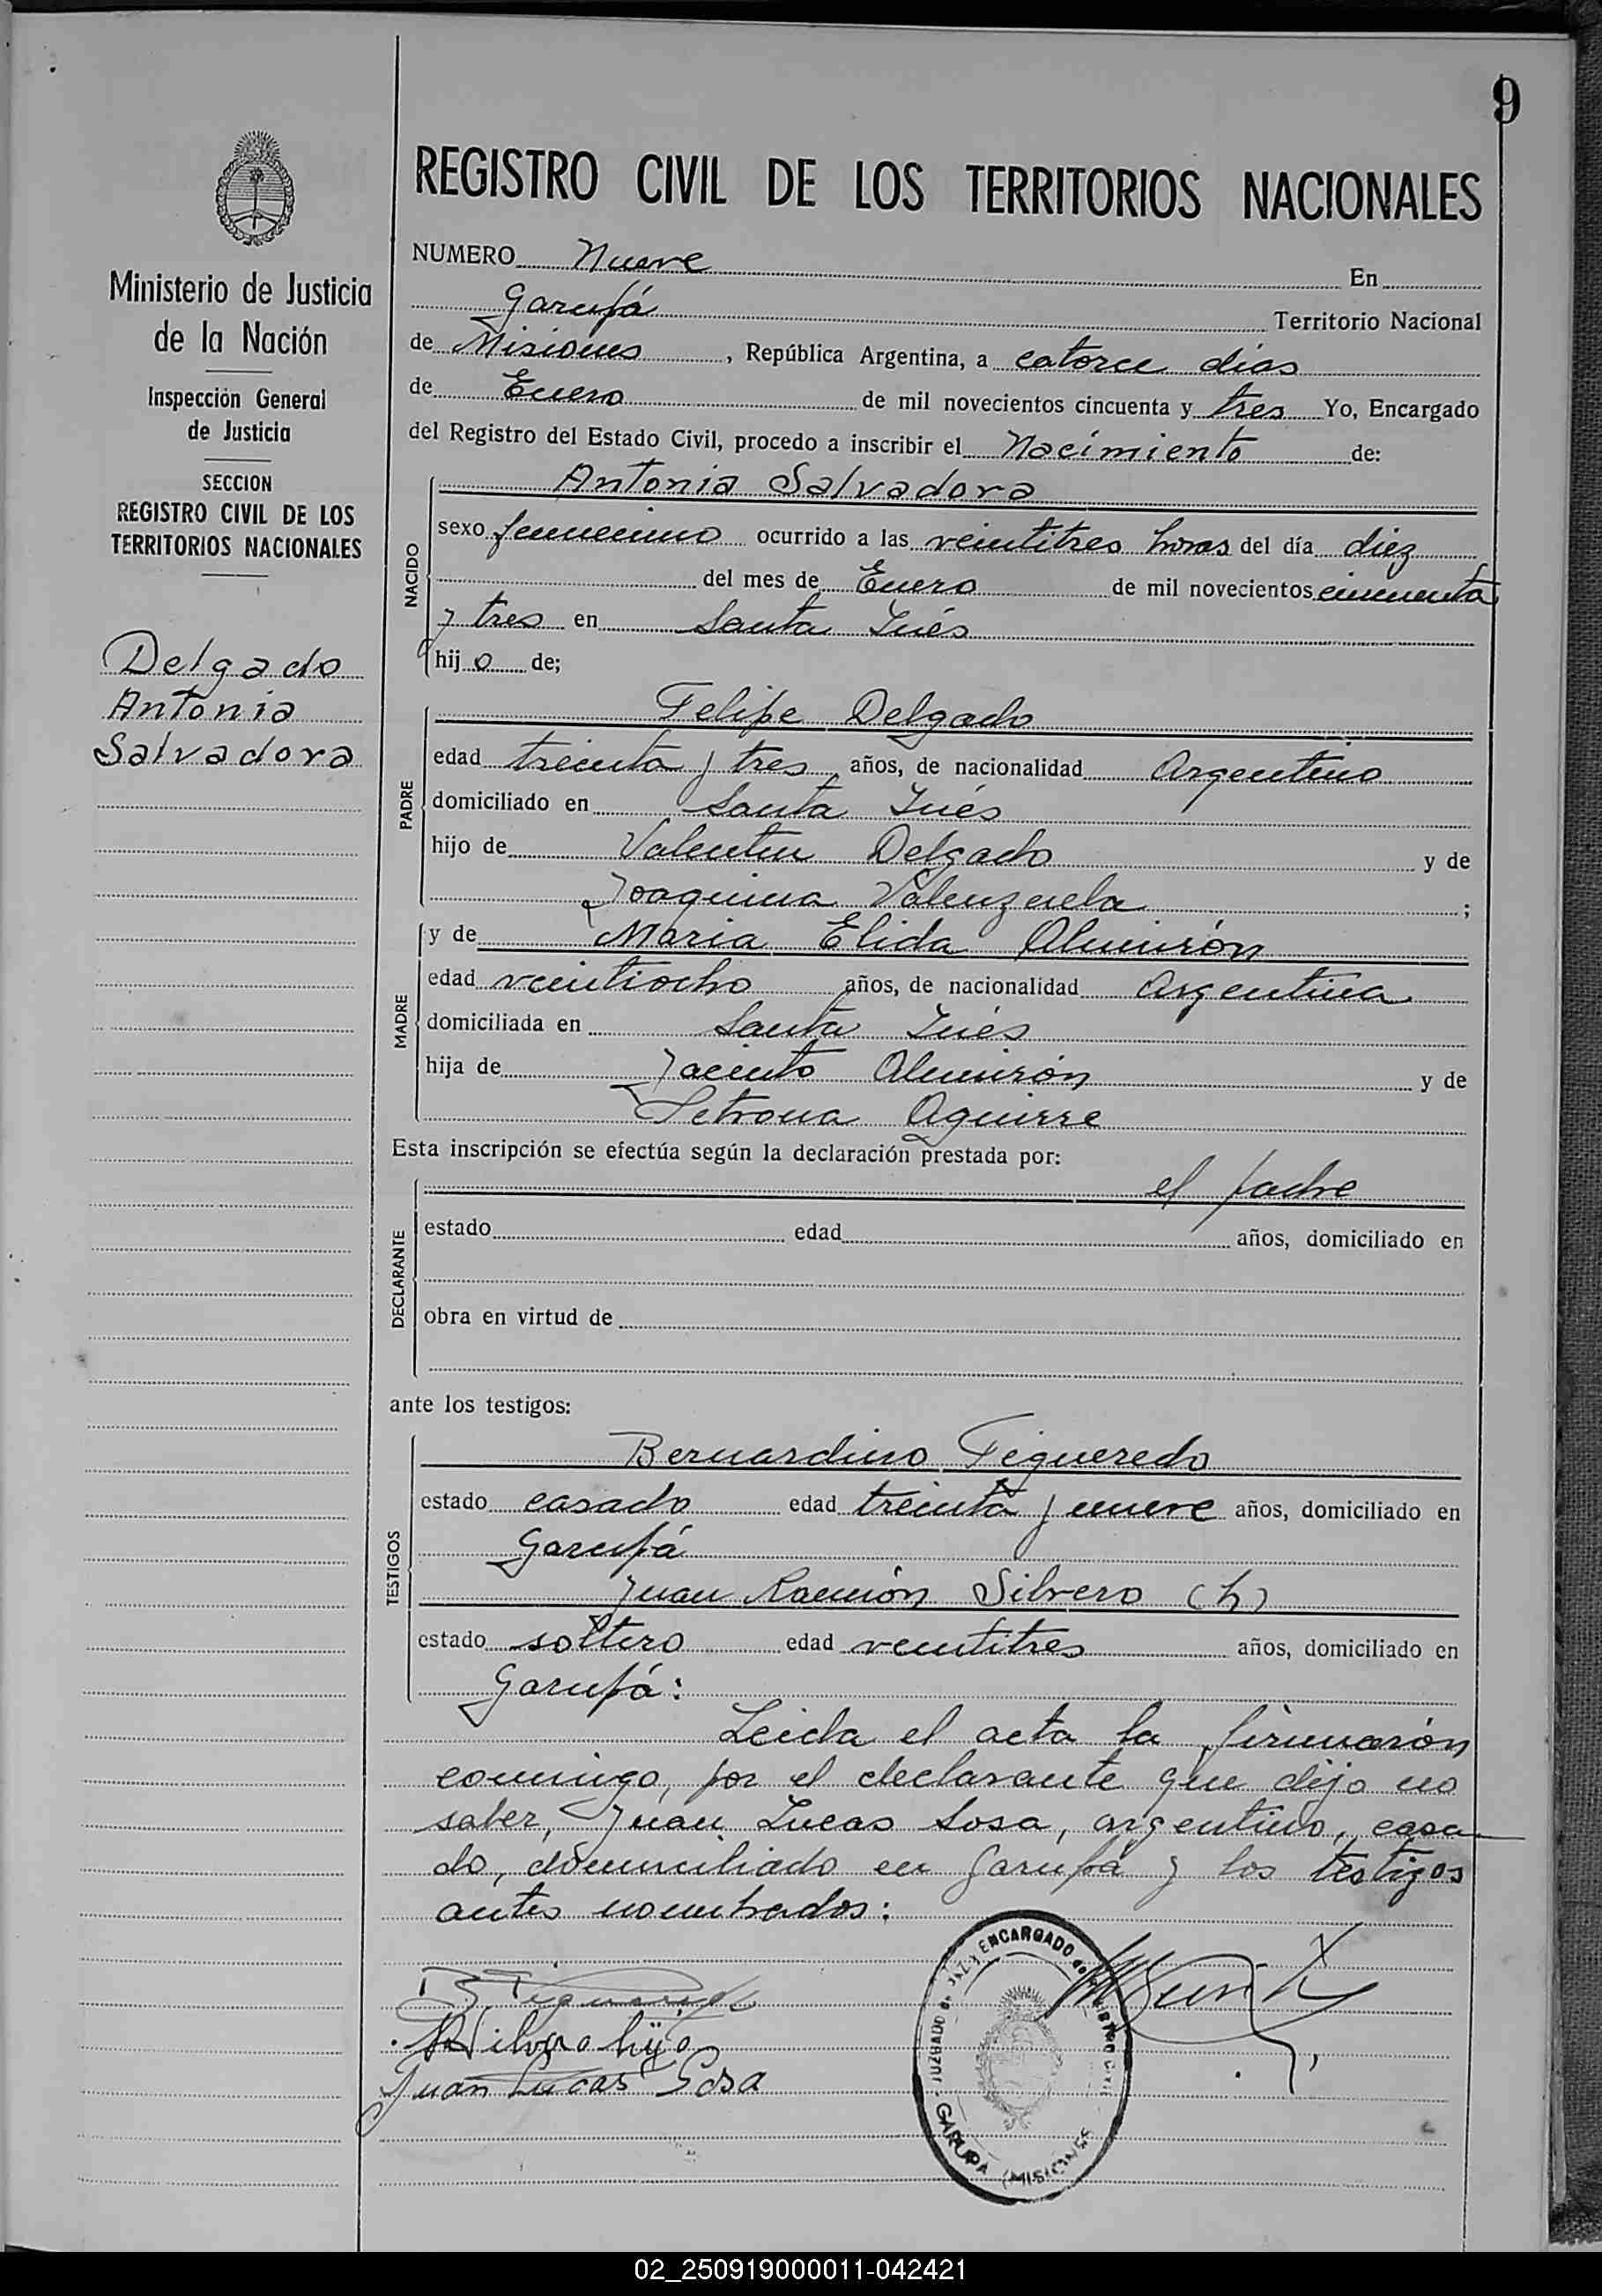 9
REGISTRO CIVIL DE LOS TERRITORIOS NACIONALES
Ministerio de Justicia
de la Nación
Inspección General
de Justicia
SECCION
REGISTRO CIVIL DE LOS
TERRITORIOS NACIONALES
Delgado
Antonia
Salvadora
NUMERO Nueve En
Garupá Territorio Nacional
de Misiones, República Argentina, a catorce días
de Enero de mil novecientos cincuenta y tres Yo, Encargado
del Registro del Estado Civil, procedo a inscribir el Nacimiento de:
NACIDO
Antonia Salvadora
sexo femenino ocurrido a las veintitres horas del día diez
del mes de Enero de mil novecientos cincuenta
y tres en Santa Inés
hij o de;
PADRE
Felipe Delgado
edad treinta y tres años, de nacionalidad Argentino
domiciliado en Santa Inés
hijo de Valentin Delgado y de
Joaquina Valenzuela ;
MADRE
y de Maria Elida Almirón
edad veintiocho años, de nacionalidad Argentina
domiciliada en Santa Inés
hija de Jacinto Almirón y de
Petrona Aguirre
Esta inscripción se efectúa según la declaración prestada por:
DECLARANTE
el padre
estado edad años, domiciliado en
obra en virtud de
ante los testigos:
TESTIGOS
Bernardino Figueredo
estado casado edad treinta y nueve años, domiciliado en
Garupá
Juan Ramón Silvero (h)
estado soltero edad veintitres años, domiciliado en
Garupá:
Leida el acta la firmarón
conmigo, por el declarante que dijo no
saber, Juan Lucas Sosa, argentino, casa
do, domiciliado en Garupá y los testigos
antes nombrados:
B Figueredo
Silvero hijo
Juan Lucas Sosa
JUZGADO DE PAZ Y ENCARGADO del REGISTRO CIVIL
GARUPA (MISIONES
02_250919000011-042421